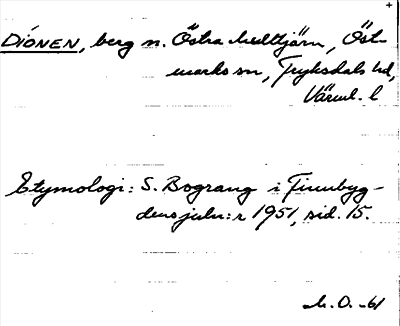 DIÓNEN, berg n. Östra Multtjärn, Öst-
marks sn, Fryksdals hd,
Värml. l
Etymologi: S. Bograng i Finnbyg-
densjuln:r 1951, sid. 15.
M.O. -61